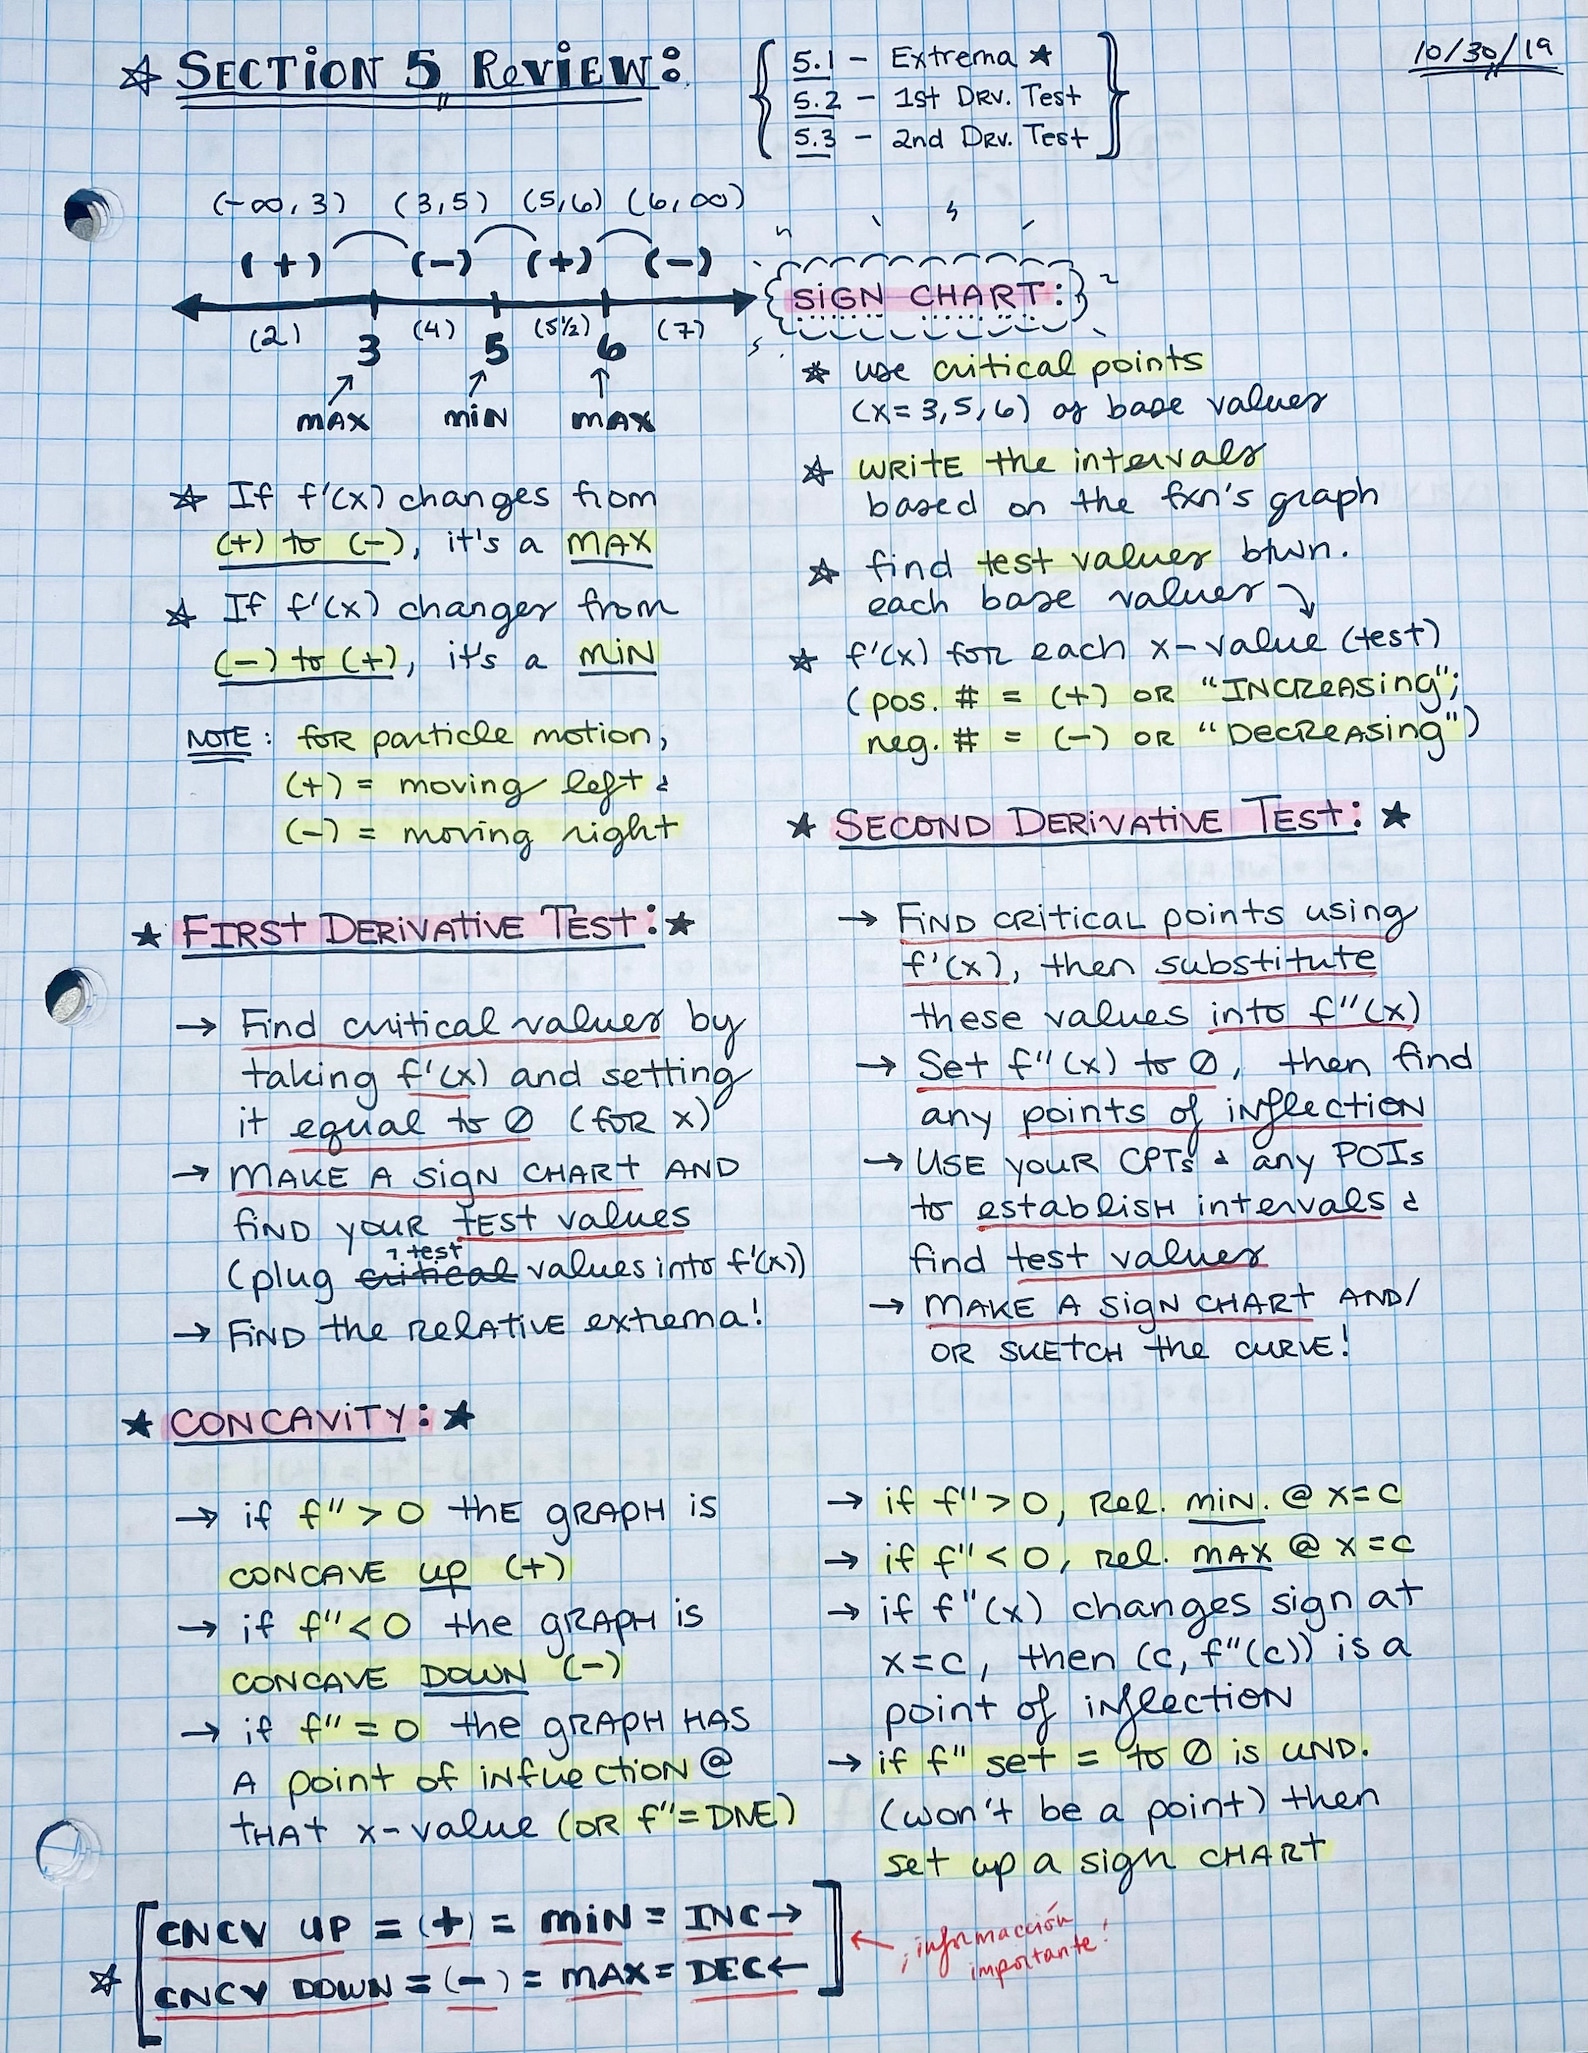 ☆ SECTION 5 REVIEW:
5.1 - Extrema ★
5.2 - 1st DRV. Test
5.3 - 2nd DRV. Test
10/30/19
(-∞, 3) (3,5) (5,6) (6,∞)
(+) (-) (+) (-)
(2) (4) (5½) (7)
3 5 6
MAX MIN MAX
☆ If f'(x) changes from
(+) to (-), it's a MAX
☆ If f'(x) changes from
(-) to (+), it's a MIN
NOTE: for particle motion,
(+) = moving left &
(-) = moving right
SIGN CHART:
☆ use critical points
(x = 3, 5, 6) as base values
☆ WRITE the intervals
based on the fxn's graph
☆ find test values btwn.
each base values
☆ f'(x) for each x-value (test)
(pos. # = (+) OR "INCREASING";
neg. # = (-) OR "DECREASING")
★ FIRST DERIVATIVE TEST: ★
→ Find critical values by
taking f'(x) and setting
it equal to 0 (for x)
→ MAKE A SIGN CHART AND
FIND YOUR TEST VALUES
test
(plug critical values into f'(x))
→ FIND the RELATIVE extrema!
★ SECOND DERIVATIVE TEST: ★
→ FIND CRITICAL points using
f'(x), then substitute
these values into f''(x)
→ Set f''(x) to 0, then find
any points of inflection
→ USE YOUR CPTs & any POIs
to establish intervals &
find test values
→ MAKE A SIGN CHART AND/
OR SKETCH the CURVE!
★ CONCAVITY: ★
→ if f'' > 0 the GRAPH is
CONCAVE UP (+)
→ if f'' < 0 the GRAPH is
CONCAVE DOWN (-)
→ if f'' = 0 the GRAPH HAS
A point of INFLECTION @
THAT x-value (OR f''= DNE)
→ if f'' > 0, Rel. MIN. @ x = c
→ if f'' < 0, rel. MAX @ x = c
→ if f''(x) changes sign at
x = c, then (c, f''(c)) is a
point of inflection
→ if f'' set = to 0 is UND.
(won't be a point) then
set up a sign CHART
☆ CNCV UP = (+) = MIN = INC →
CNCV DOWN = (-) = MAX = DEC ←
← ¡informacción
importante!